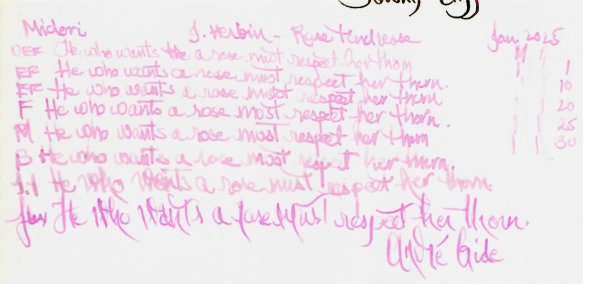 Midori J. Herbin - Rose Tendresse Jan 2025
UEF He who wants the a rose must respect her thorn
EF He who wants a rose must respect her thorn. 1
EF He who wants a rose must respect her thorn 10
F He who wants a rose must respect her thorn. 20
M He who wants a rose must respect her thorn 25
B He who wants a rose must respect her thorn. 30
1.1 He who wants a rose must respect her thorn.
flex He who wants a rose must respect her thorn.
André Gide